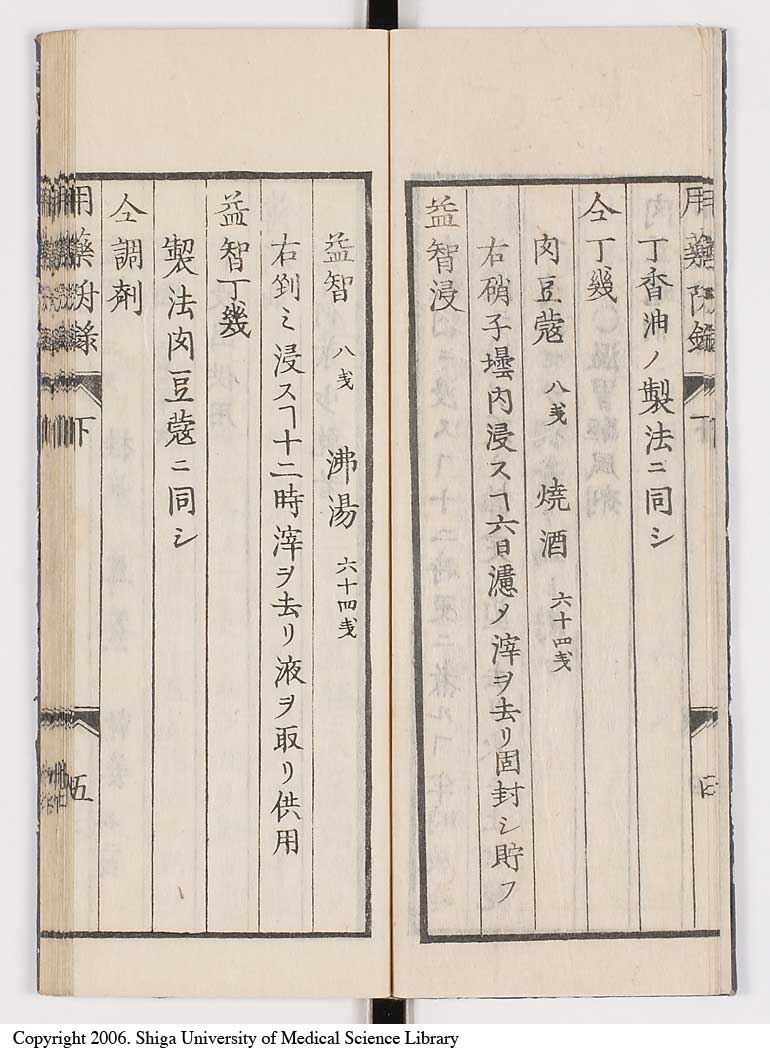 用藥附錄 下
丁香油ノ製法ニ同シ
仝丁幾
肉豆蔲 八戔 焼酒 六十四戔
右硝子壜内浸スヿ六日濾メ滓ヲ去リ固封シ貯フ
益智浸
益智 八戔 沸湯 六十四戔
右剉ミ浸スヿ十二時滓ヲ去リ液ヲ取リ供用
益智丁幾
製法肉豆蔲ニ同シ
仝調劑
用藥附錄 下 五
Copyright 2006. Shiga University of Medical Science Library